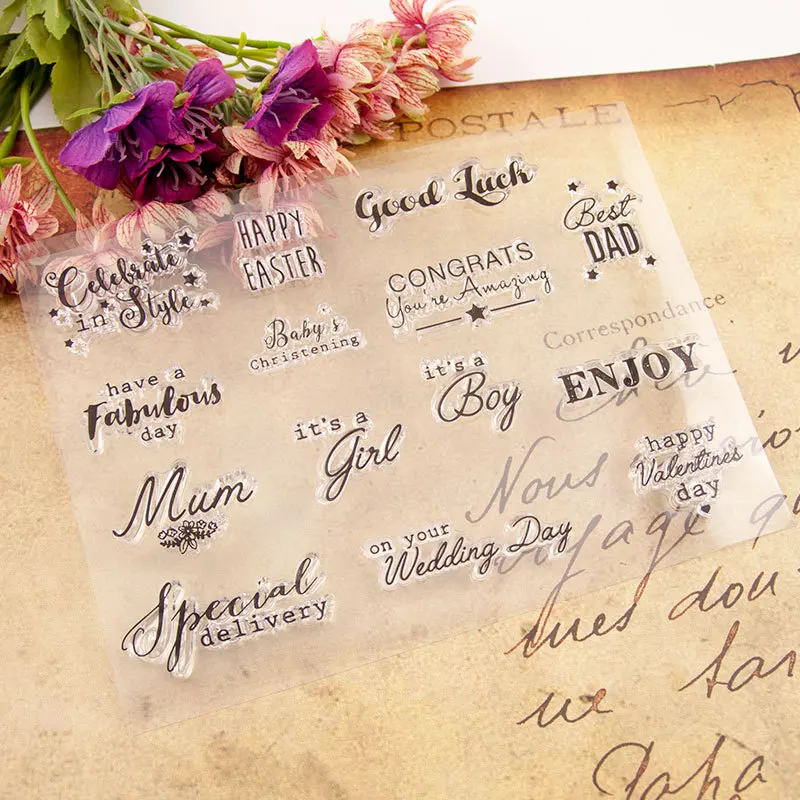 POSTALE
Good Luck
HAPPY
EASTER
Best
DAD
Celebrate
in Style
CONGRATS
You're Amazing
Correspondance
Baby's
Christening
have a
Fabulous
day
it's a
Boy
ENJOY
it's a
Girl
happy
Valentines
day
Mum
on your
Wedding Day
Special
delivery
Nous
voyage
mes dou
Papa